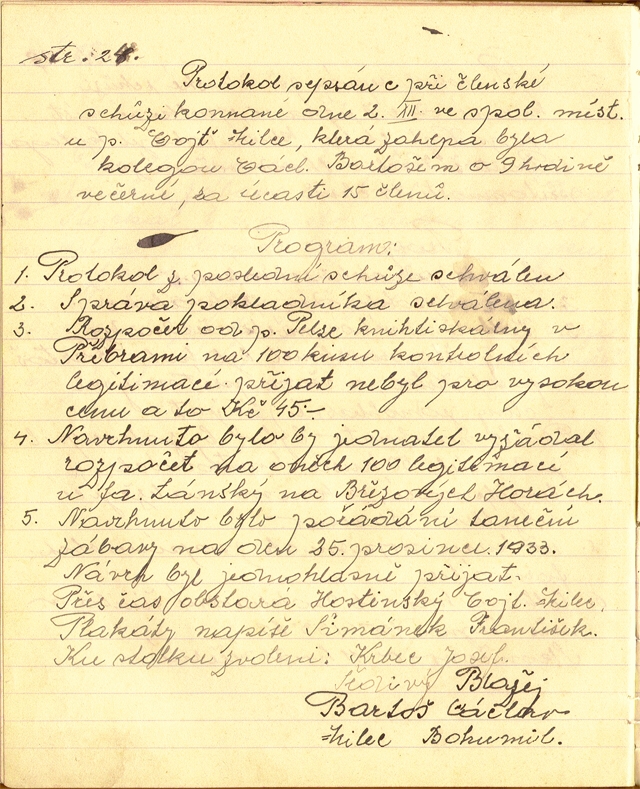 str. 24.
Protokol sepsán c při členské
schůzi konnané dne 2. XII. ve spol. míst.
u p. Vojt Hilce, která zahepá byla
kolegou Václ. Bartošem o 9 hodině
večerní, za účasti 15 členů.
Program:
1. Protokol z. poslední schůze schválen
2. Správa pokladníka schválena.
3. Rozpočet od p. Pelze knihtiskárny v
Příbrami na 100 kusu kontrolních
legitimací přijat nebyl pro vysokou
cenu a to Kč 45.-
4. Navrhnuto bylo by jednatel vyžádal
rozpočet na oněch 100 legitimací
u fa. Lánský na Březových Horách.
5. Navrhnuto bylo pořádání taneční
zábavy na den 25. prosince. 1933.
Návrh byl jednohlasně přijat.
Přes čas obstará Hostinský Vojt. Hilec.
Plakáty napíše Šimánek František.
Ku stolku zvoleni: Krbec Josef.
Šedivý Blažej
Bartoš Václav
Hilec Bohumil.